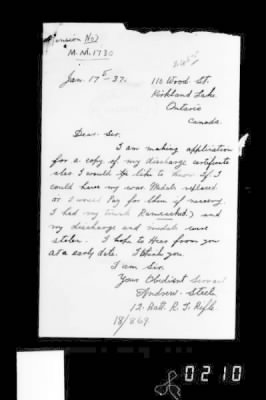 Pension No)
M.M. 1730
Jan. 17th-37.
110 Wood St.
Kirkland Lake
Ontario
Canada.
Dear Sir.
I am making application
for a copy of my discharge certificate
also I would like to know if I
could have my war Medals replaced
or I would Pay for them if necessary.
I had my trunk Ransacked) and
my discharge and medals were
stolen. I hope to Hear from you
at a early date. I Thank you.
I am Sir
Your Obedient Servant
Andrew. Steele
12. Batt. R. I. Rifle.
18/869
0210